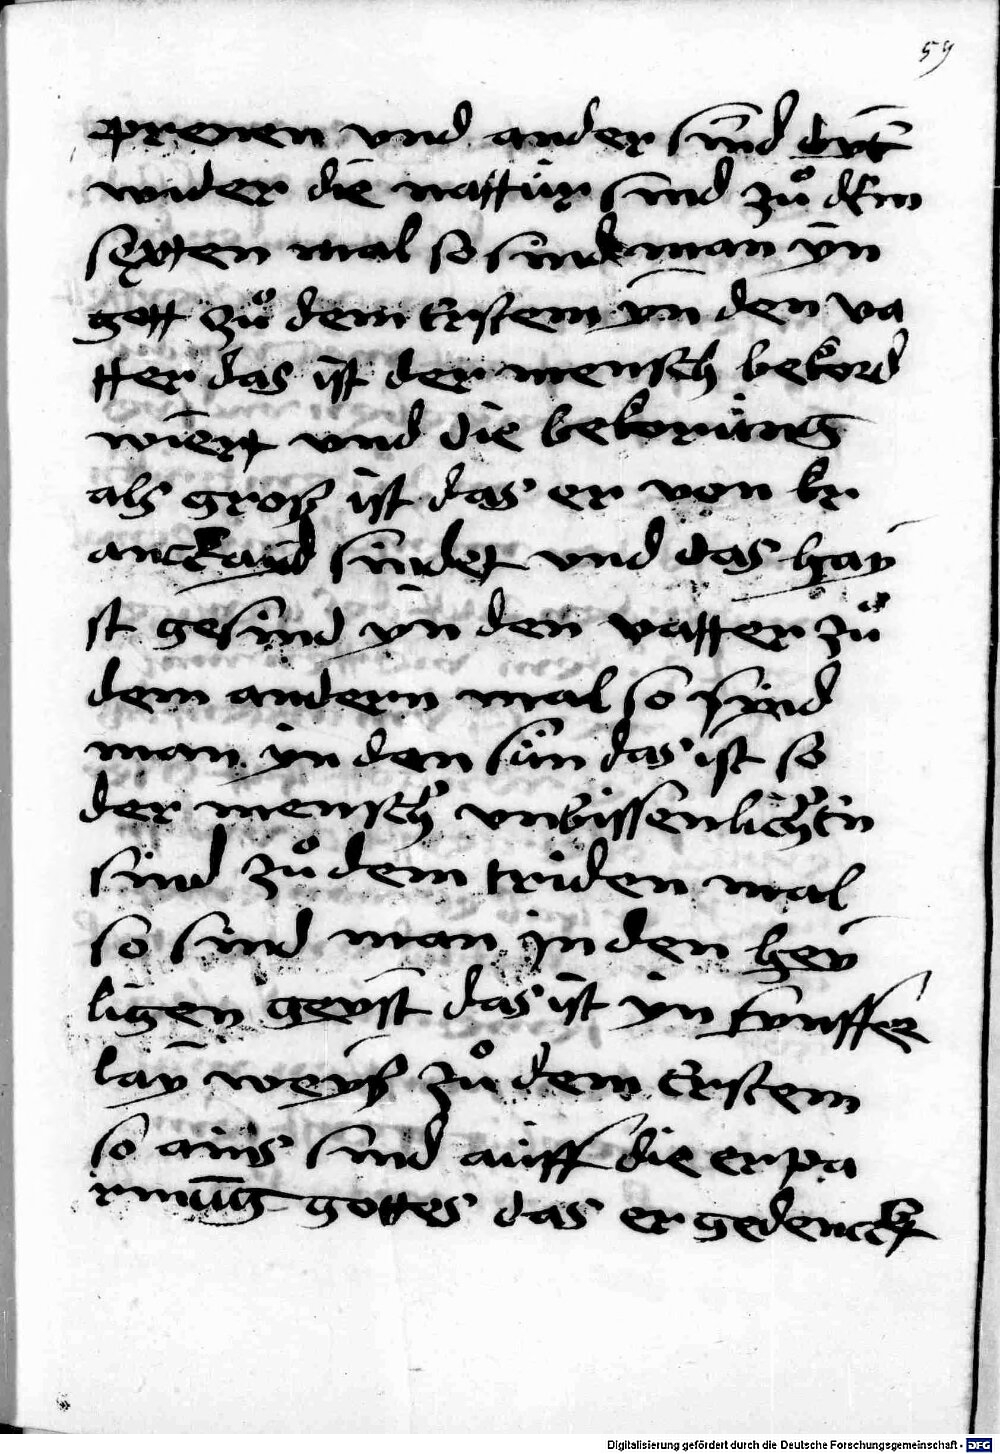 59
prenen vnd ander sünd dyt
wider die nattür sind zů dem
sexten mal so sind man yn
gott zů dem Ersten yn den va
tter das ist der mensch bekord
wiert vnd die bekorüng
als groß ist das er von kr
anckayd sündet vnd das hay
st gesünd yn den vatter zů
dem andern mal so synd
man yn den sün das ist so
der mensch vnbissenlichen
sind zů dem triden mal
so sind man jn den hey
ligen geyst das ist yn fynffer
lay weyß zů dem Erstem
so ains sind aüff die erpa
rmüng gottes das er gedenckt
Digitalisierung gefördert durch die Deutsche Forschungsgemeinschaft - DFG